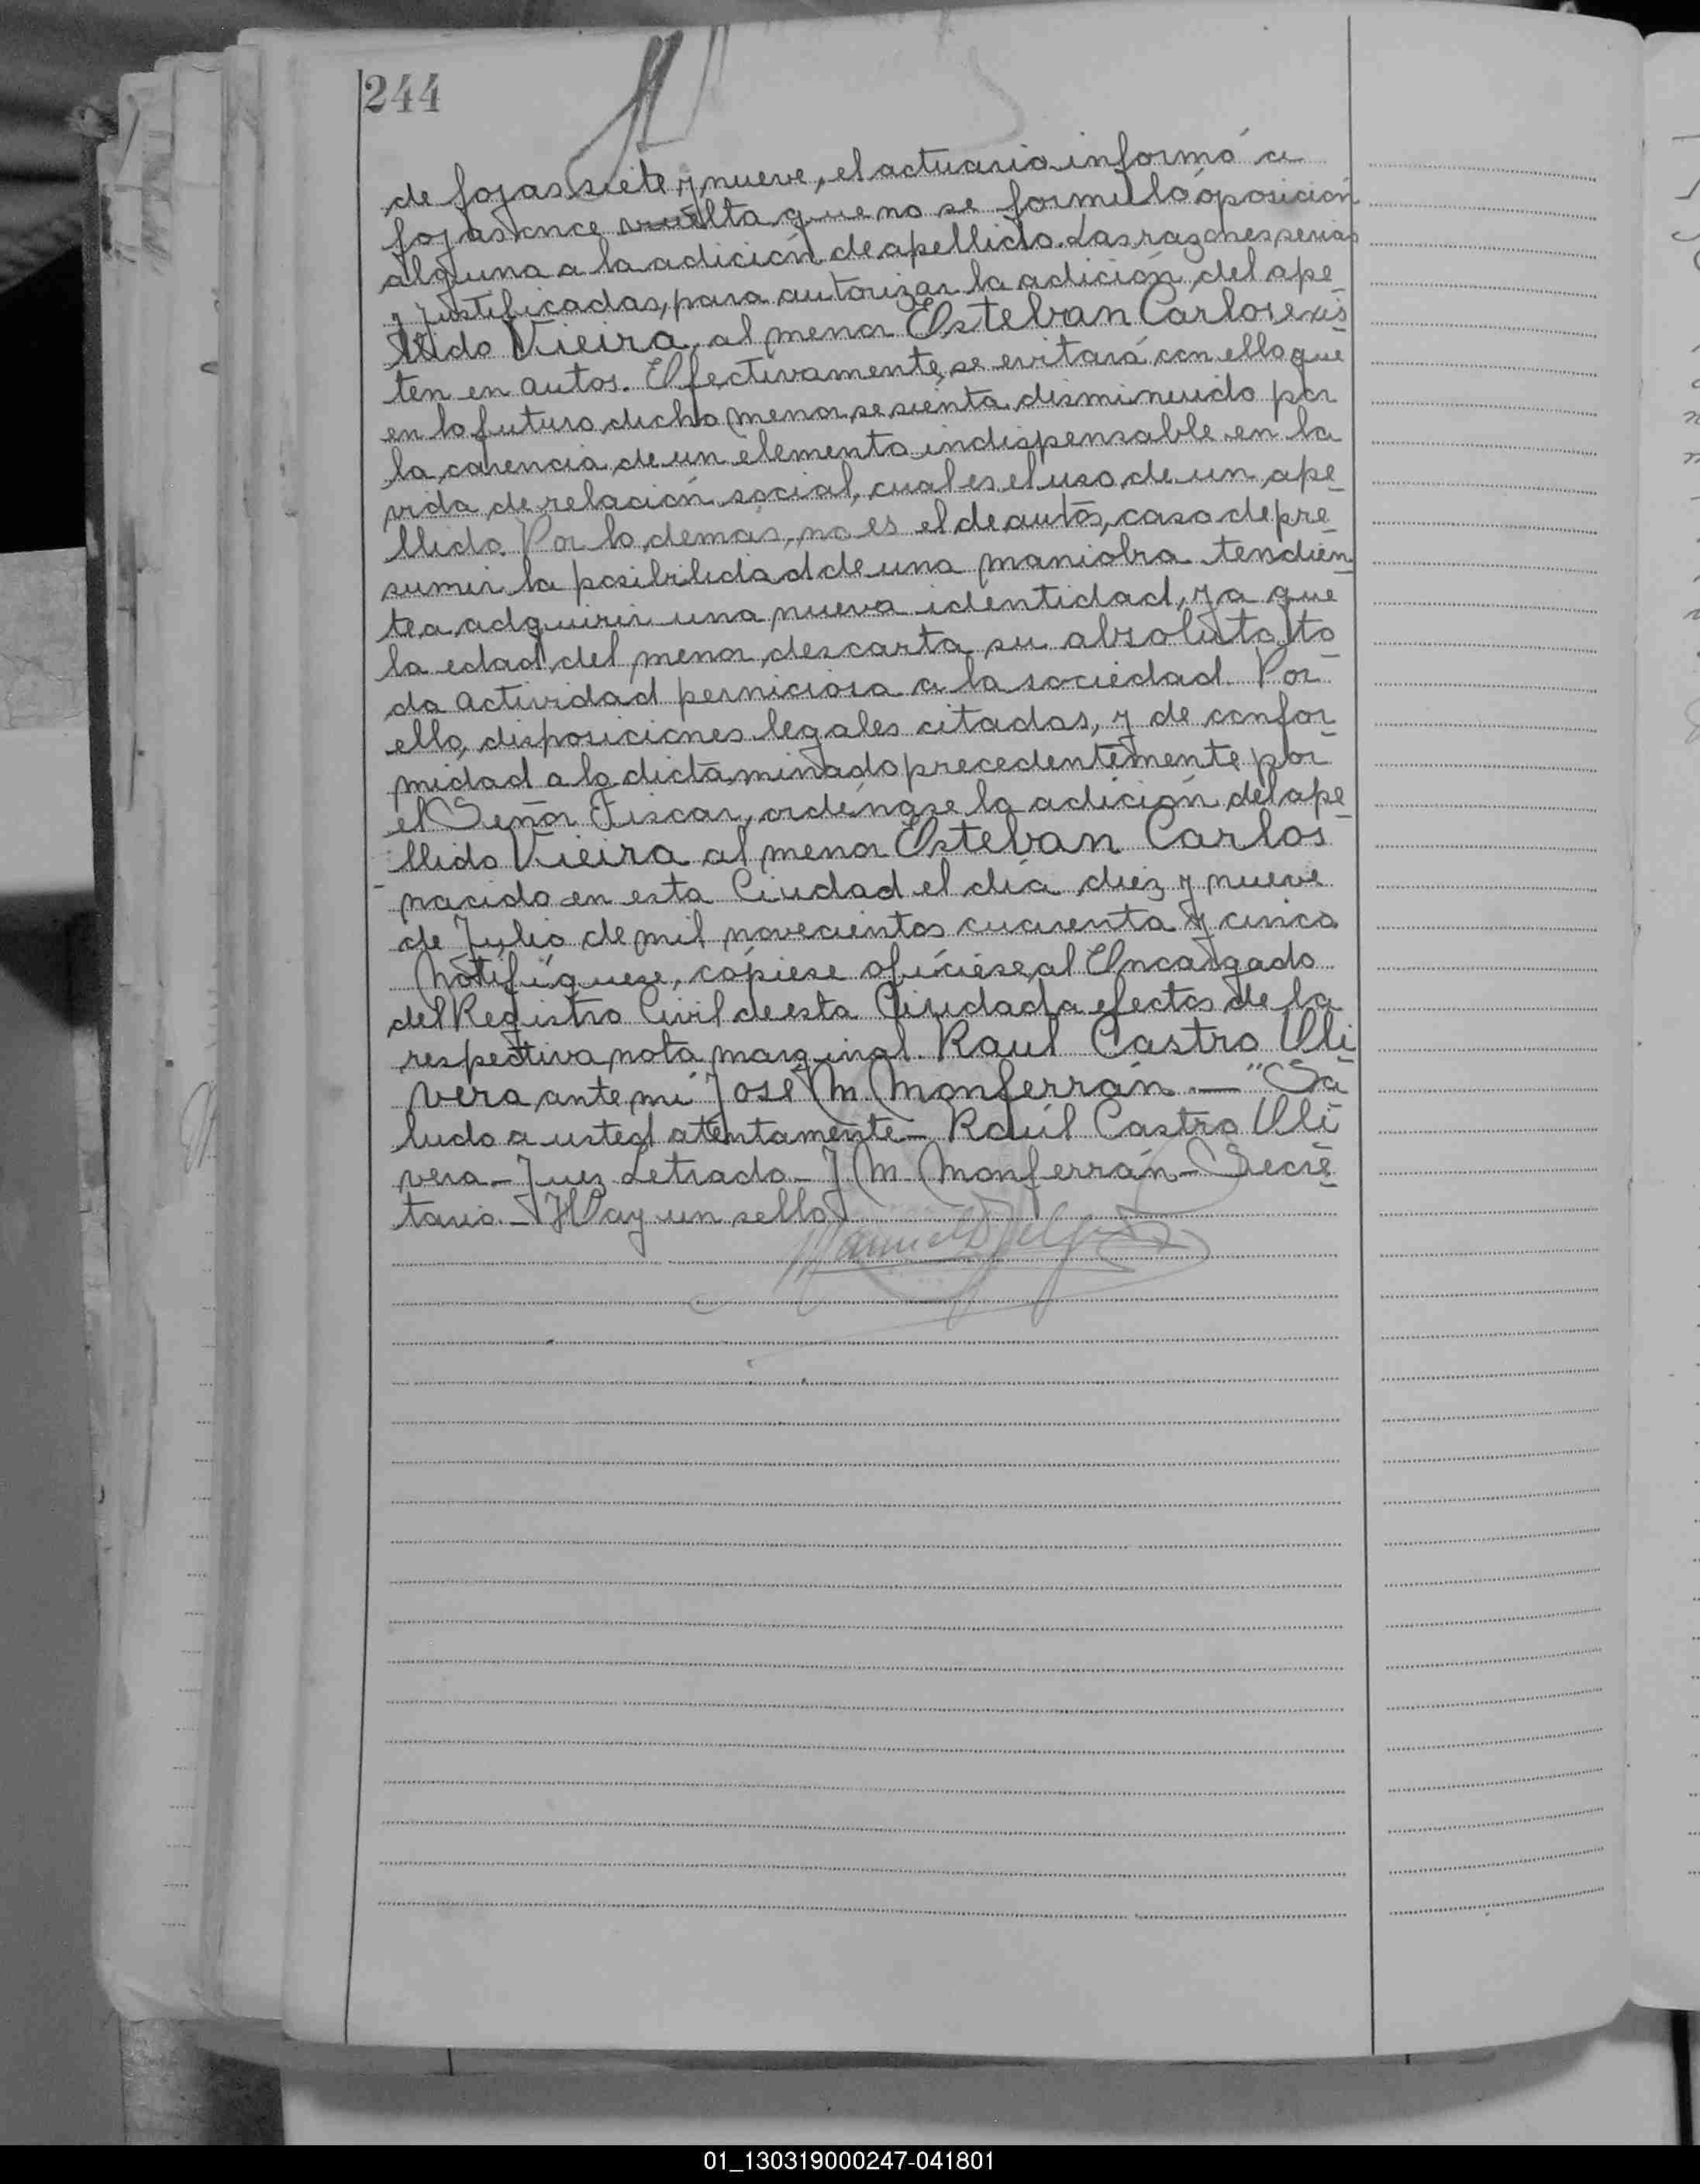 244
de fojas siete y nueve, el actuario informó a
fojas once vuelta que no se formuló oposición
alguna a la adición de apellido. Las razones serias
y justificadas, para autorizar la adición del ape-
llido Vieira, al menor Esteban Carlos exis-
ten en autos. Efectivamente, se evitará con ello que
en lo futuro, dicho menor, se sienta disminuido por
la carencia, de un elemento indispensable en la
vida de relación social, cual es el uso de un ape-
llido. Por lo demás, no es el de autos, caso de pre-
sumir la posibilidad de una maniobra tendien-
te a adquirir una nueva identidad, ya que
la edad del menor, descarta su absoluto to-
da actividad perniciosa a la sociedad. Por
ello, disposiciones legales citadas, y de confor-
midad a lo dictaminado precedentemente por
el Señor Fiscar, ordénase la adición del ape-
llido Vieira al menor Esteban Carlos
nacido en esta Ciudad el día diez y nueve
de Julio de mil novecientos cuarenta y cinco
Notifíquese, cópiese ofíciese al Encargado
del Registro Civil de esta Ciudad a efectos de la
respectiva nota marginal. Raul Castro Oli-
vera, ante mi José M. Monferrán. — "Sa-
ludo a usted atentamente - Raúl Castro Oli-
vera - Juez Letrado - J. M. Monferrán - Secre-
tario. - Hay un sello
01_130319000247-041801